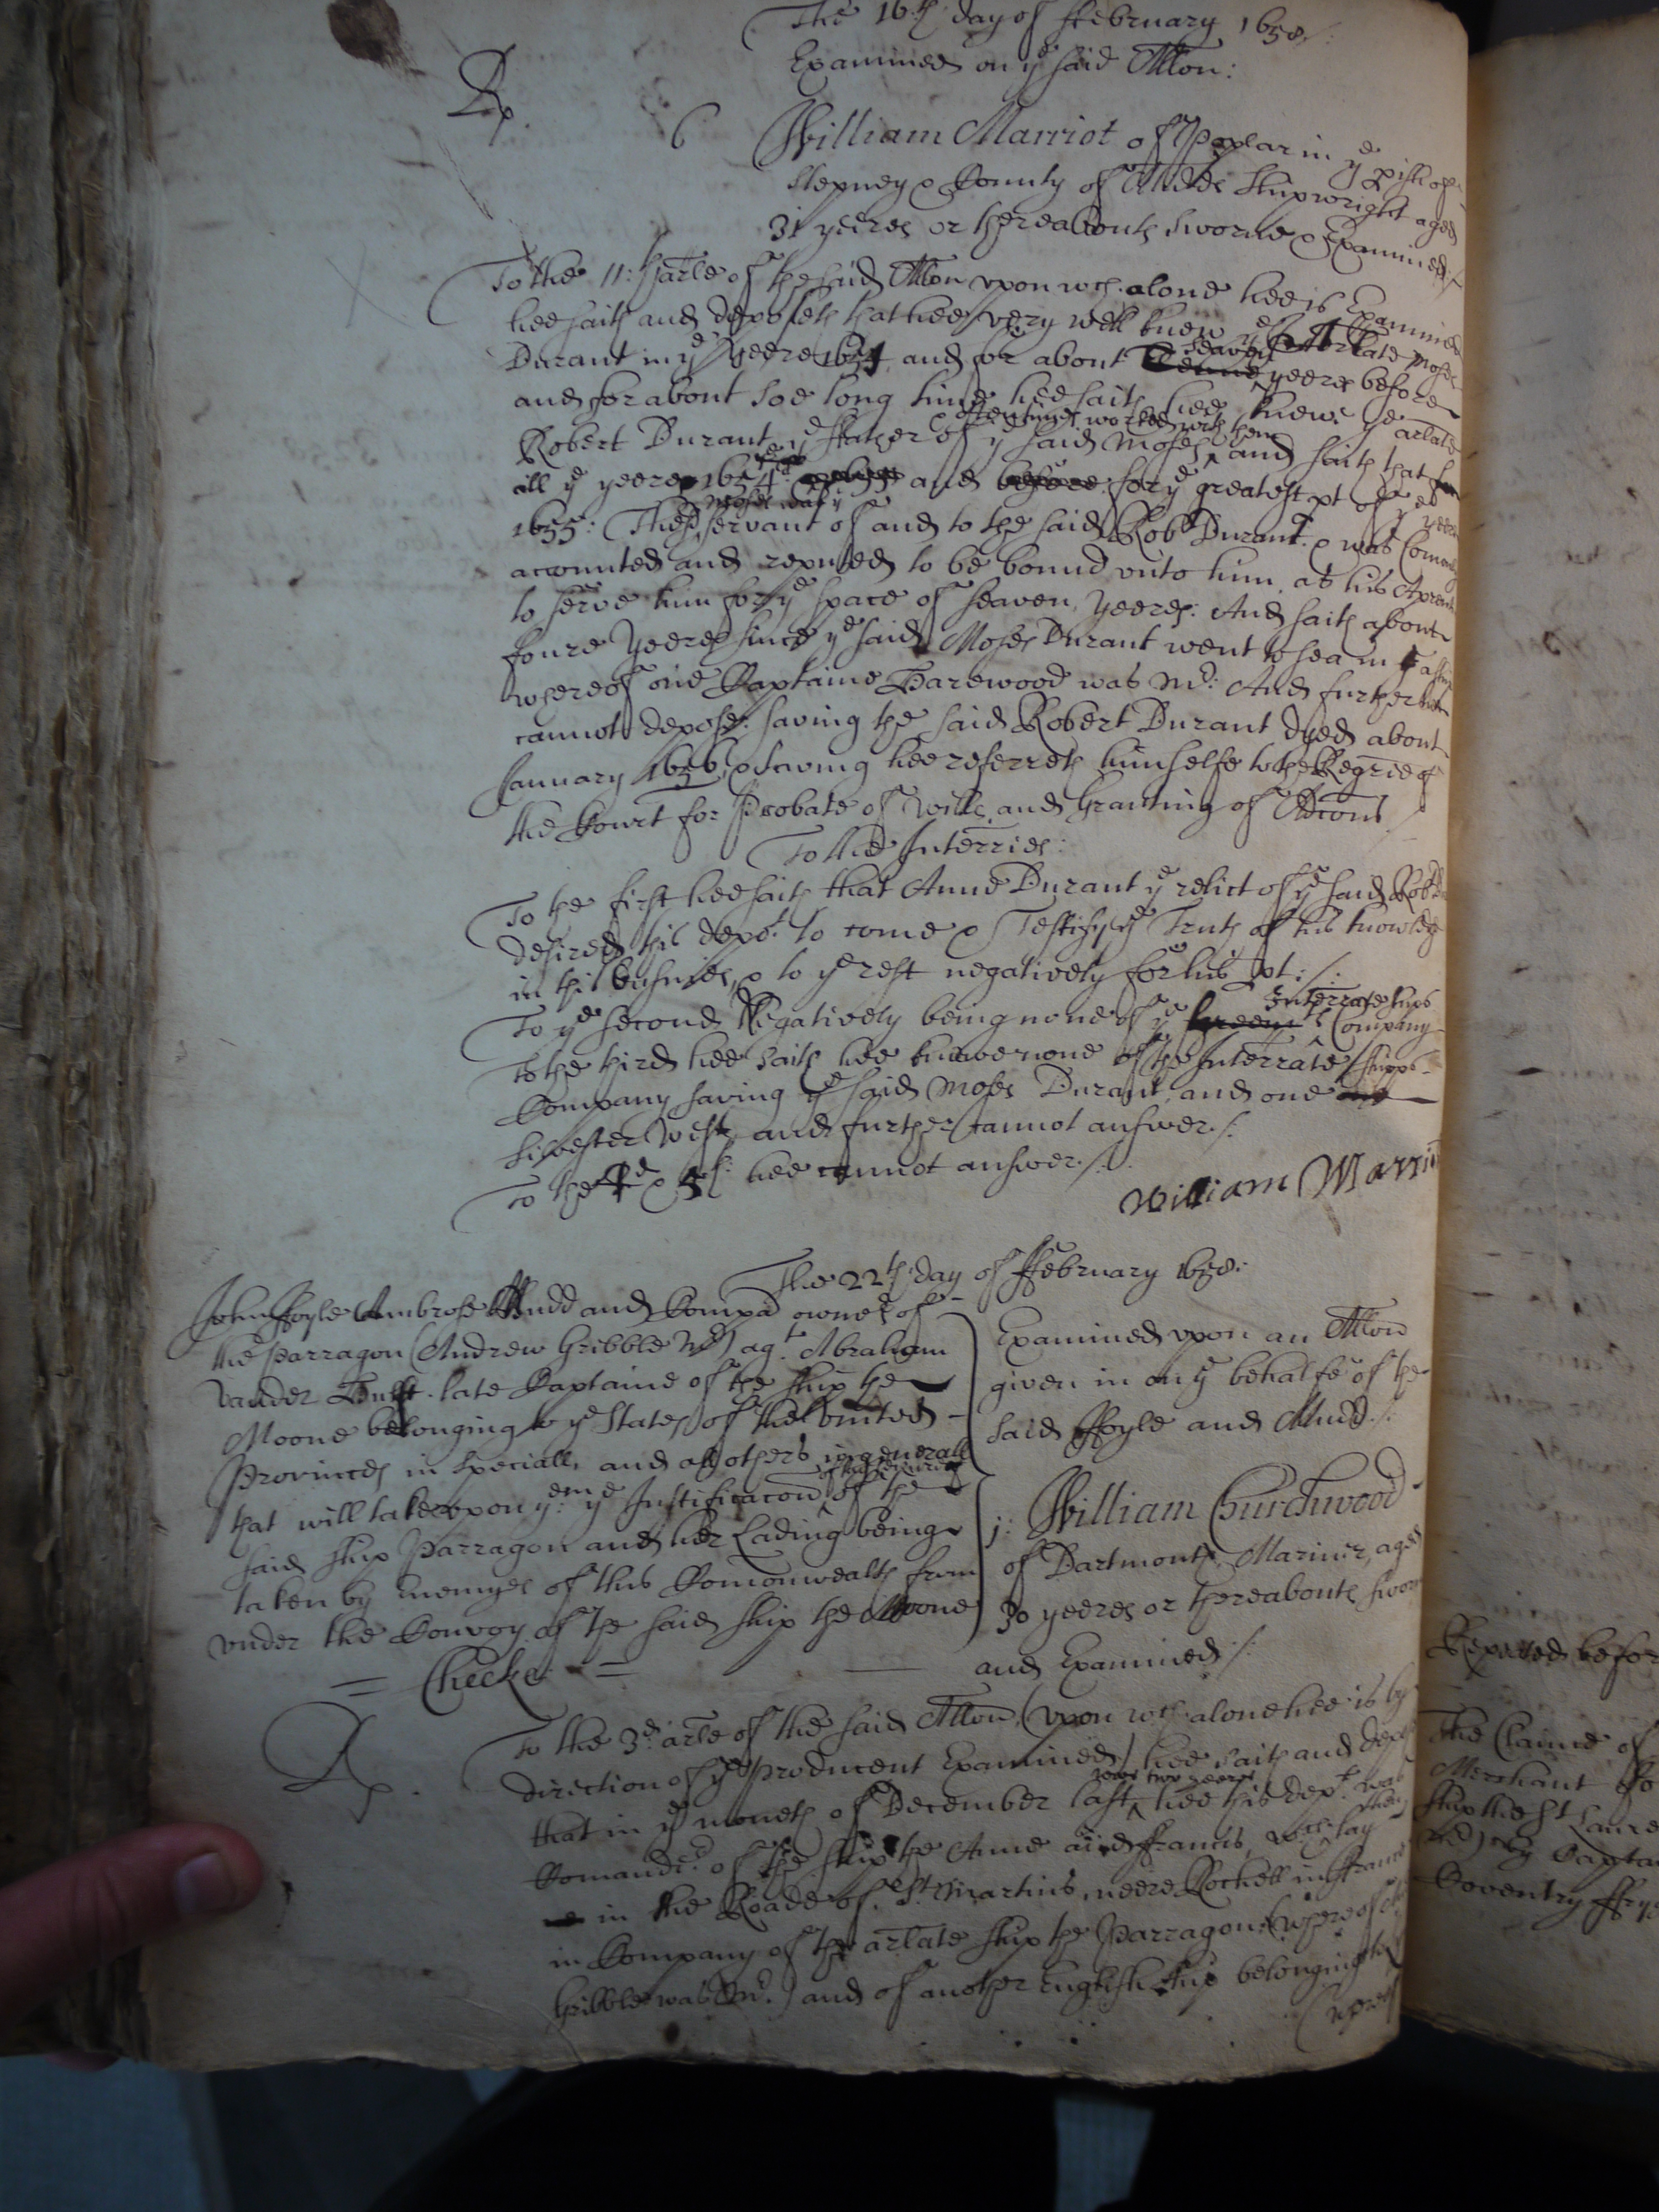 The 16:th day of ffebruary 1658:
Examined on ye said Allon:
Rp. 6
William Marriot of Poplar in ye pish of
Stepney & County of Midds Shipwright aged
31 yeeres or thereabouts sworne & Examined:/
To the 11:th arle of the said Allon vpon wch. alone hee is Examined
hee saith and deposeth that hee very well knew ye arlate Moses
Durant in ye yeere 1654 and for about seaven yeeres before
and for about soe long time hee saith hee knew ye arlate
Robert Durant ye ffather of ye said Moses & often times worked with them and saith that
all ye yeere 1654 and before for ye greatest pt of ye yeere
1655: The sd Moses was ye servant of and to the said Robt Durant. & was Comonly
accounted and reputed to be bound vnto him as his Aprent
to serve him for ye space of seaven yeeres: And saith about
foure yeeres since ye said Moses Durant went to sea in a shipp
whereof one Captaine Harewood was Mr: And further
cannot depose: saving the said Robert Durant dyed about
January 1656, & saving hee referreth himselfe to the Regrie of
the Court for Probate of wills and Granting of Adcons
To the Interries:
To the first hee saith that Anne Durant ye relict of ye said Robt
desired this dept. to come & Testify ye Truth of his knowledge
in this busines, & to ye rest negatively for his pt:/:
To ye second Negatively being none of ye Interrate ships Company
To the third hee saith hee knewe none of the Interrate shipps
Company saving ye said Moses Durant, and one
Silvester West, and further cannot answer./.
To the & 5th: hee cannot answer./.
William Marrio
The 22th: day of ffebruary 1658:
John ffoyle Ambrose Mudd and Compa owners of
the Parragon (Andrew Gribble Mr) agt. Abraham
Vander late Captaine of the ship the
Moone belonging to ye States of the vnited
Provinces in speciall, and all others in generall
that will take vpon yem: ye Justificacon of the seizure of the
said ship Parragon and her Lading being
taken by Enemyes of this Comonwealth from
vnder the Convoy of the said ship the Moone
= Checke =
Examined vpon an Allon
given in on ye behalfe of the
said ffoyle and Mudd./.
j: William Churchwood
of Dartmouth, Mariner, aged
30 yeeres or thereabouts sworn
and Examined./.
Rp.
To the 3d: arle of the said Allon, (vpon wch. alone hee is by
direction of ye Producent Examined) hee saith and
that in ye moneth of December last was two yeeres hee this dept. was
Comandr. of the ship the Anne and ffrancis, wch. then lay
in the Roade of St. Martins, neere Rochell in ffrance
in Company of the arlate ship the Parragon, (whereof
Gribble was Mr.) and of another English ship belonging to
Repeated befor
The Claime of
Merchant fo
ship the St Laure
Mr) by Captai
Coventry ffry